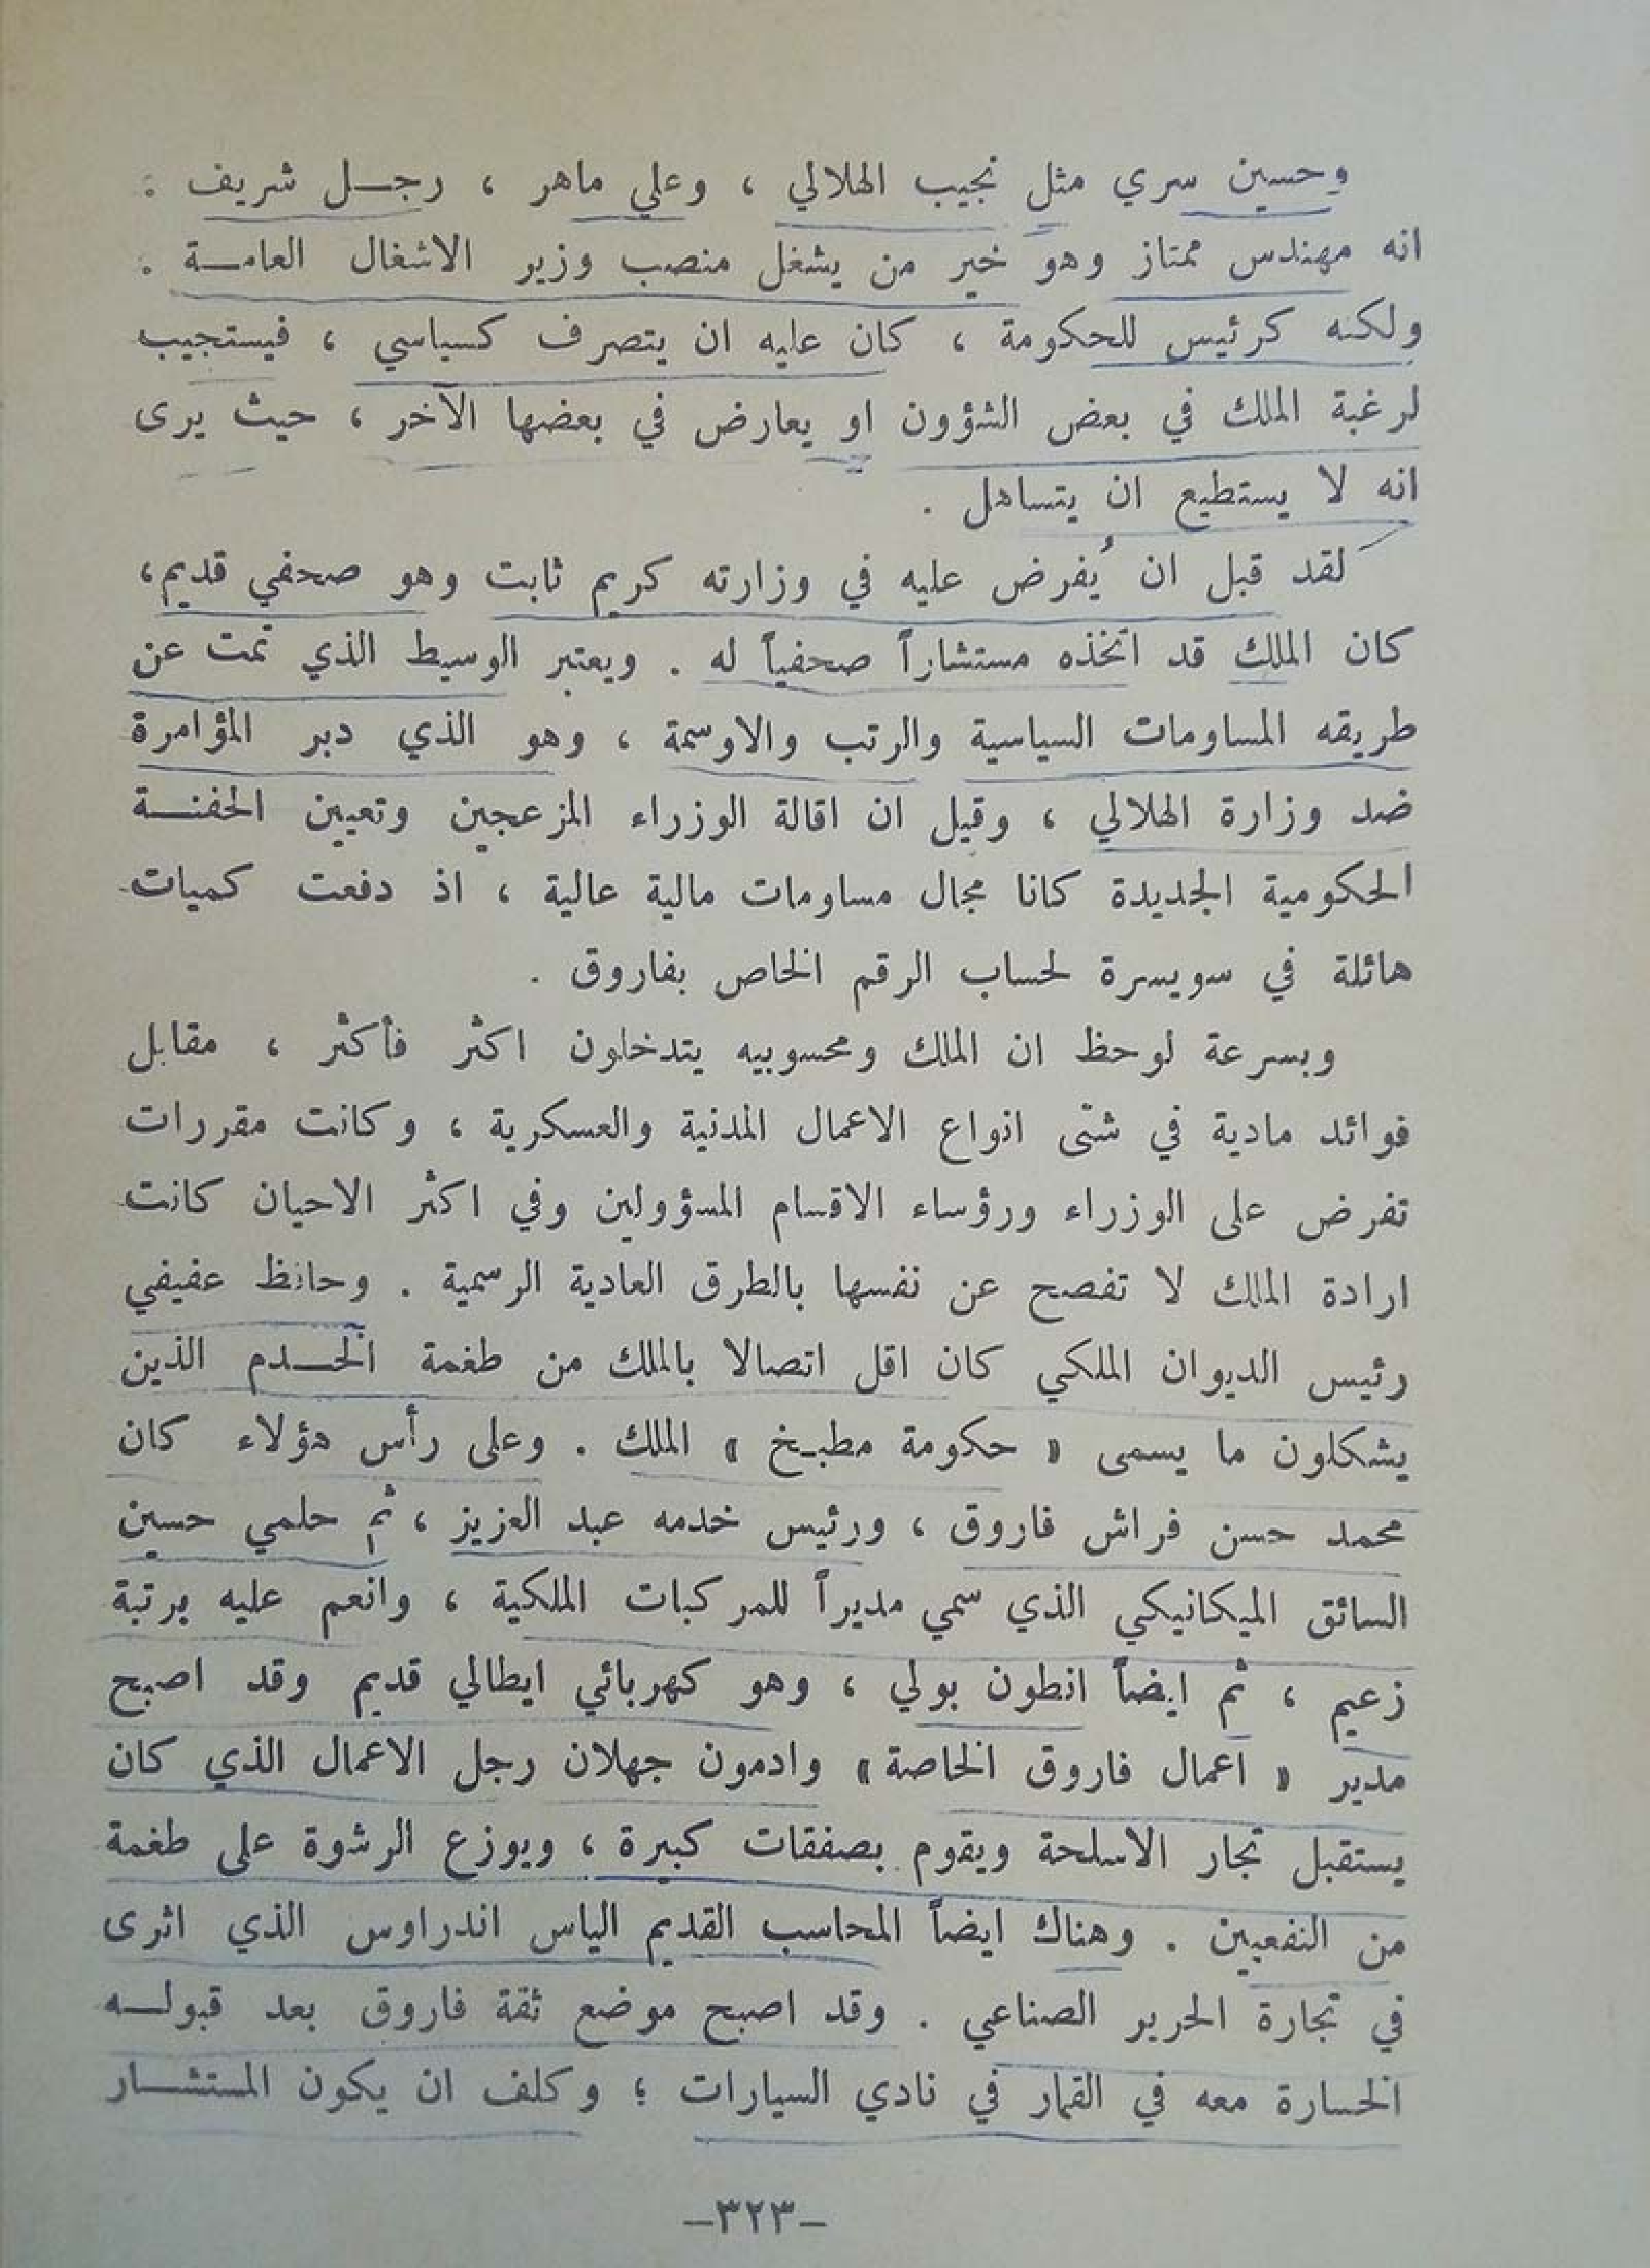 وحسين سري مثل نجيب الهلالي ، وعلي ماهر ، رجـل شريف :
انه مهندس ممتاز وهو خير من يشغل منصب وزير الاشغال العامـة :
ولكنه كرئيس للحكومة ، كان عليه ان يتصرف كسياسي ، فيستجيب
لرغبة الملك في بعض الشؤون او يعارض في بعضها الآخر ، حيث يرى
انه لا يستطيع ان يتساهل .
لقد قبل ان يُفرض عليه في وزارته كريم ثابت وهو صحفي قديم،
كان الملك قد اتخذه مستشاراً صحفياً له . ويعتبر الوسيط الذي تمت عن
طريقه المساومات السياسية والرتب والاوسمة ، وهو الذي دبر المؤامرة
ضد وزارة الهلالي ، وقيل ان اقالة الوزراء المزعجين وتعيين الحفنـة
الحكومية الجديدة كانا مجال مساومات مالية عالية ، اذ دفعت كميات
هائلة في سويسرة لحساب الرقم الخاص بفاروق .
وبسرعة لوحظ ان الملك ومحسوبيه يتدخلون اكثر فأكثر ، مقابل
فوائد مادية في شتى انواع الاعمال المدنية والعسكرية ، وكانت مقررات
تفرض على الوزراء ورؤساء الاقسام المسؤولين وفي اكثر الاحيان كانت
ارادة الملك لا تفصح عن نفسها بالطرق العادية الرسمية . وحافظ عفيفي
رئيس الديوان الملكي كان اقل اتصالا بالملك من طغمة الخـدم الذين
يشكلون ما يسمى « حكومة مطبـخ » الملك . وعلى رأس هؤلاء كان
محمد حسن فراش فاروق ، ورئيس خدمه عبد العزيز ، ثم حلمي حسين
السائق الميكانيكي الذي سمي مديراً للمركبات الملكية ، وانعم عليه برتبة
زعيم ، ثم ايضاً انطون بولي ، وهو كهربائي ايطالي قديم وقد اصبح
مدير « اعمال فاروق الخاصة » وادمون جهلان رجل الاعمال الذي كان
يستقبل تجار الاسلحة ويقوم بصفقات كبيرة ، ويوزع الرشوة على طغمة
من النفعيين . وهناك ايضاً المحاسب القديم الياس اندراوس الذي اثرى
في تجارة الحرير الصناعي . وقد اصبح موضع ثقة فاروق بعد قبولـه
الخسارة معه في القمار في نادي السيارات ؛ وكلف ان يكون المستشـار
–٣٢٣–